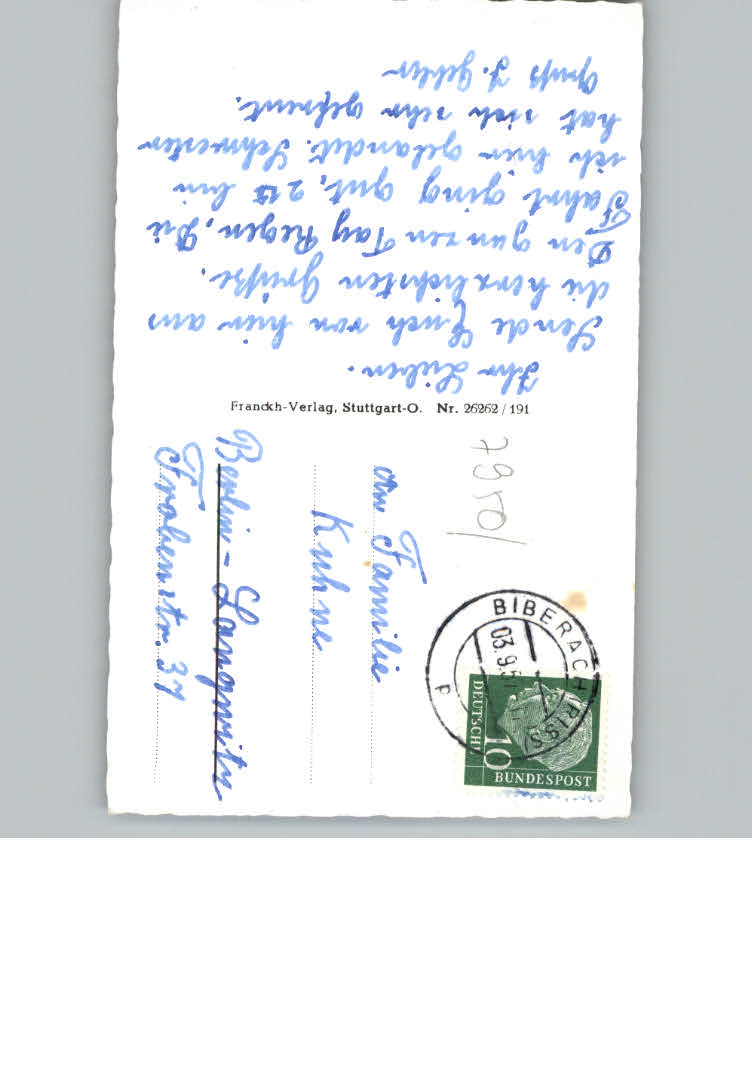 Ihr Lieben.
Sende Euch von hier aus
die herzlichsten Grüße.
Den ganzen Tag Regen, Die
Fahrt ging gut, 2 bin
ich hier gelandet. Schwester
hat sich sehr gefreut.
Gruß J. Gehler
Franckh-Verlag, Stuttgart-O. Nr. 26262/191
An Familie
Kuhne
Berlin-Lankwitz
Frobenstr. 37
BIBERACH RISS
03.9.5
d
DEUTSCHE
BUNDESPOST
10